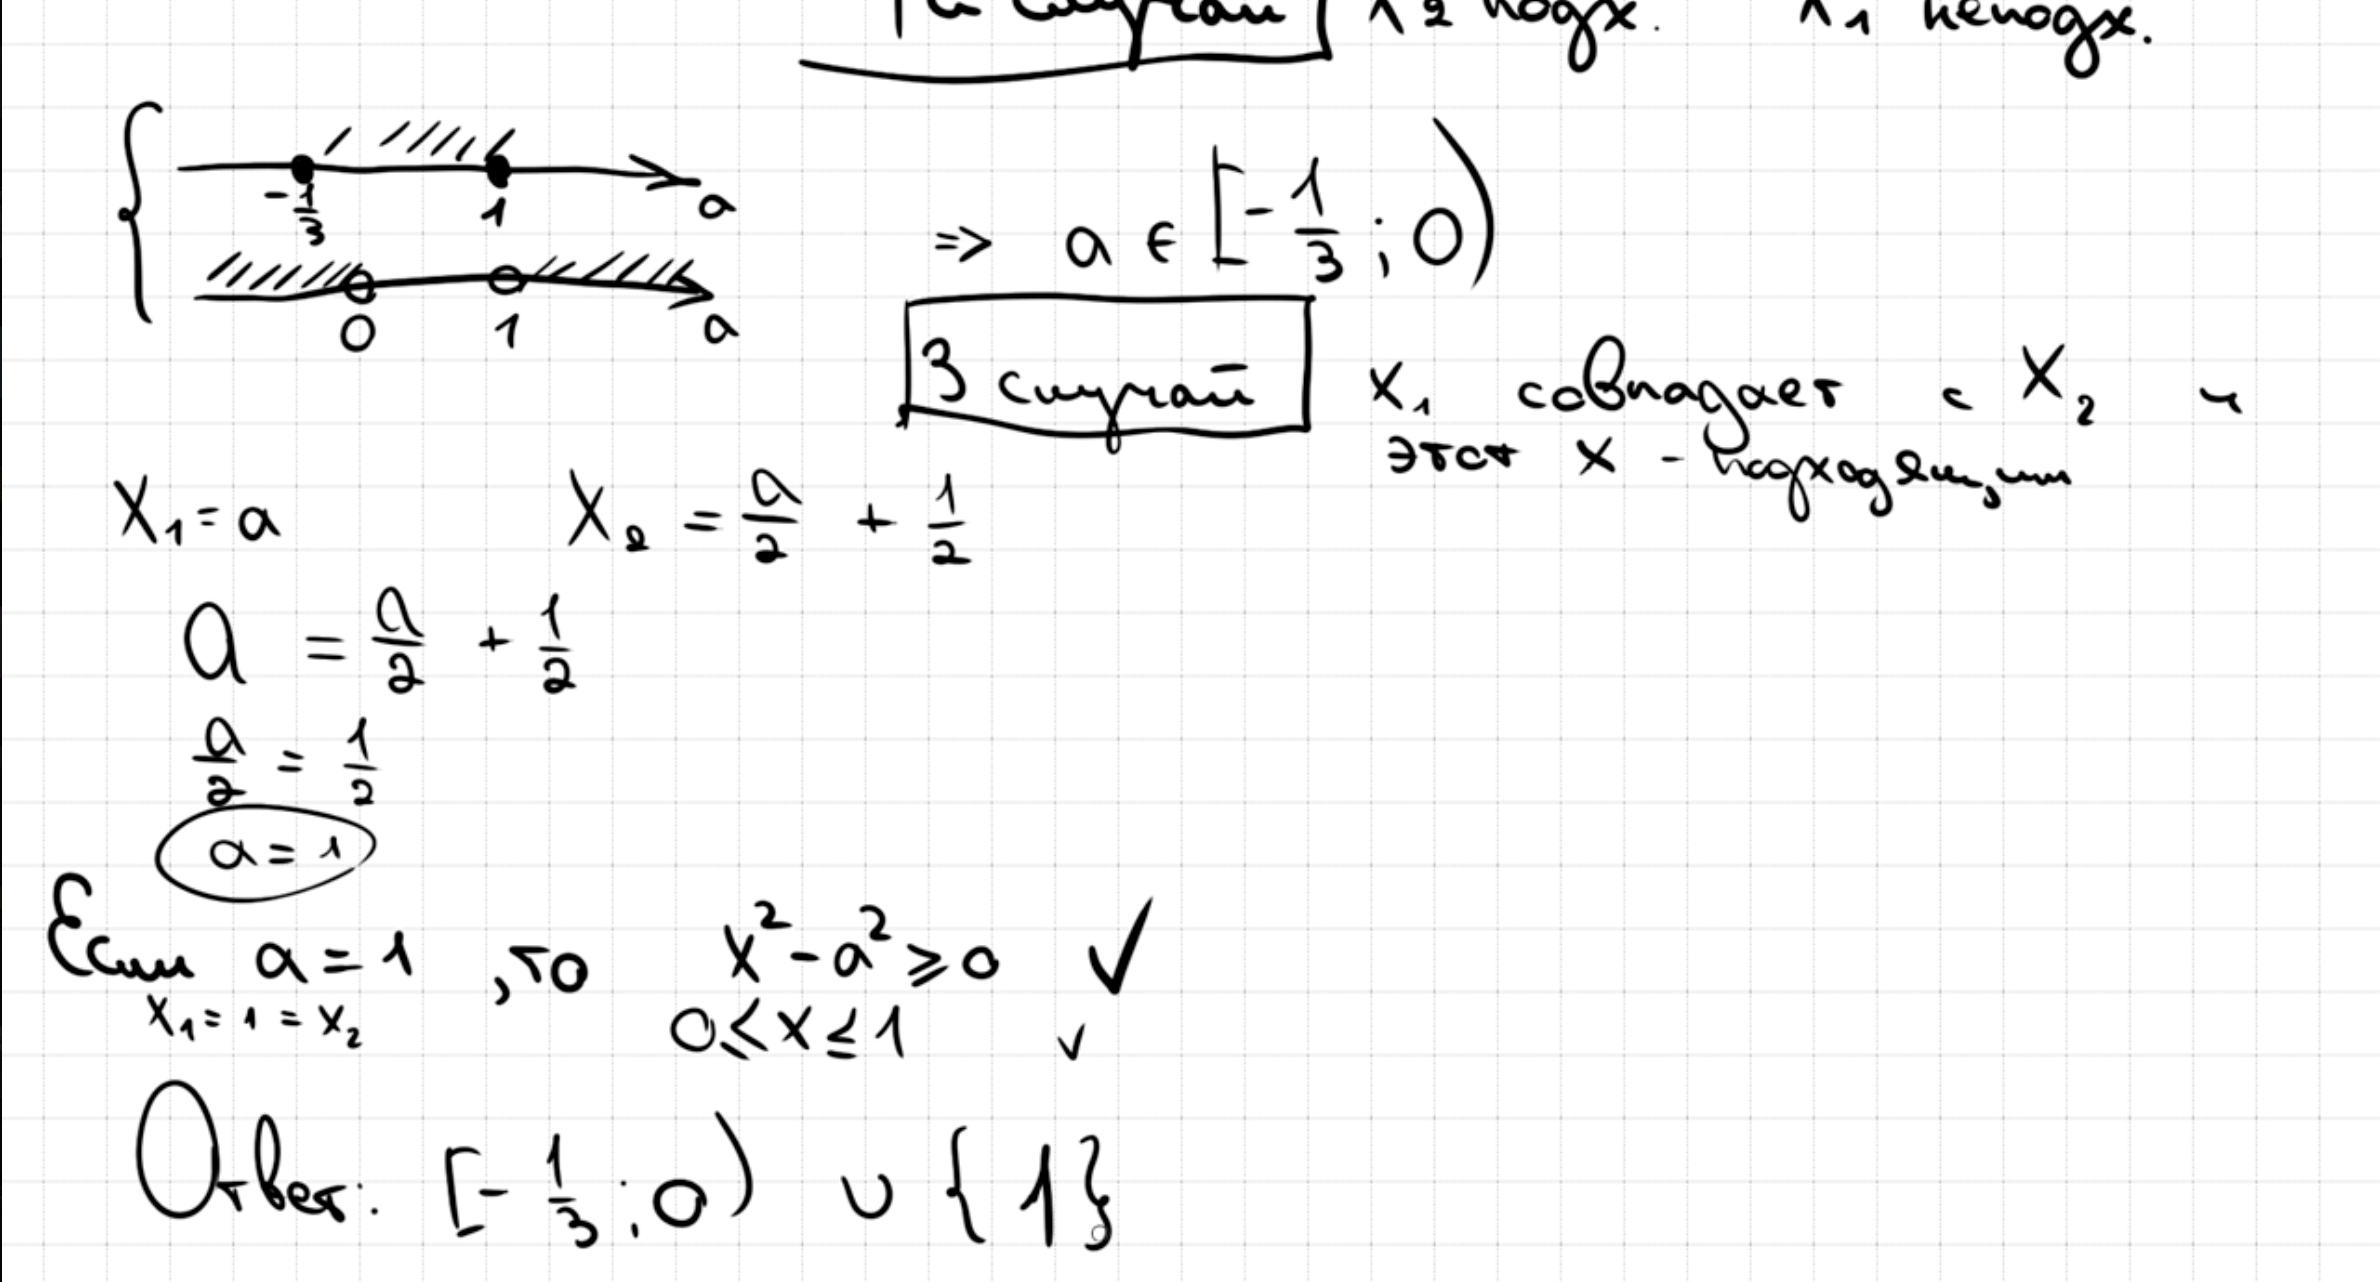 случай x₂ подх. x₁ неподх.
-1/3 1 a
0 1 a
=> a ∈ [-1/3; 0)
3 случай x₁ совпадает с x₂ и
этот x - подходящий
x₁ = a x₂ = a/2 + 1/2
a = a/2 + 1/2
a/2 = 1/2
a = 1
Если a = 1, то x² - a² ≥ 0 ✓
x₁ = 1 = x₂ 0 ≤ x ≤ 1 ✓
Ответ: [-1/3; 0) ∪ {1}